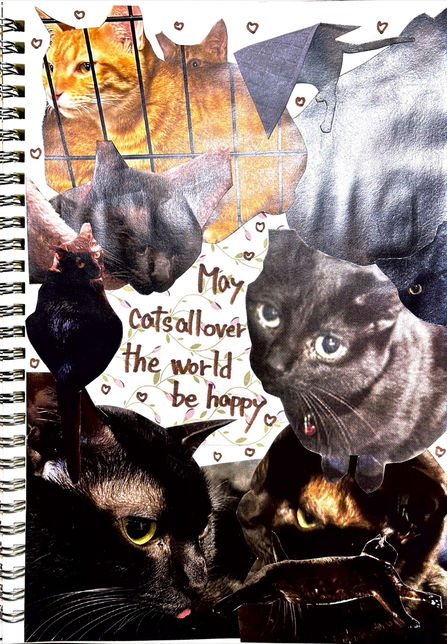 May
cats all over
the world
be happy